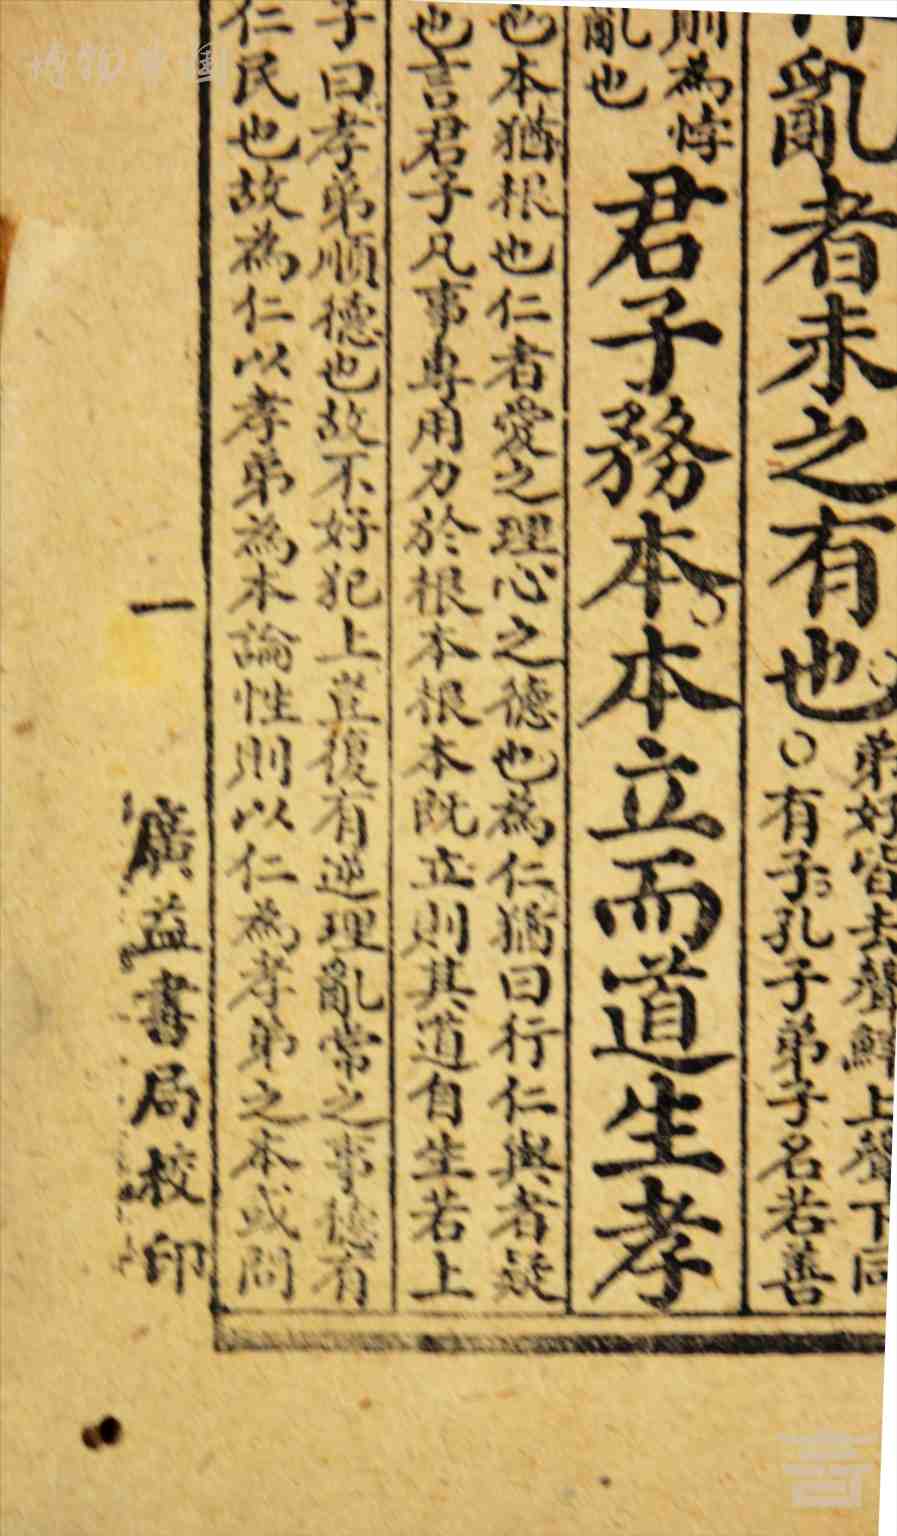 作亂者未之有也
弟好皆去聲鮮上聲下同
○有子孔子弟子名若善
則為悖
亂也
君子務本本立而道生孝
也本猶根也仁者愛之理心之德也為仁猶曰行仁與者疑
也言君子凡事專用力於根本根本既立則其道自生若上
子曰孝弟順德也故不好犯上豈復有逆理亂常之事德有
仁民也故為仁以孝弟為本論性則以仁為孝弟之本或問
一
廣益書局校印
博物中國